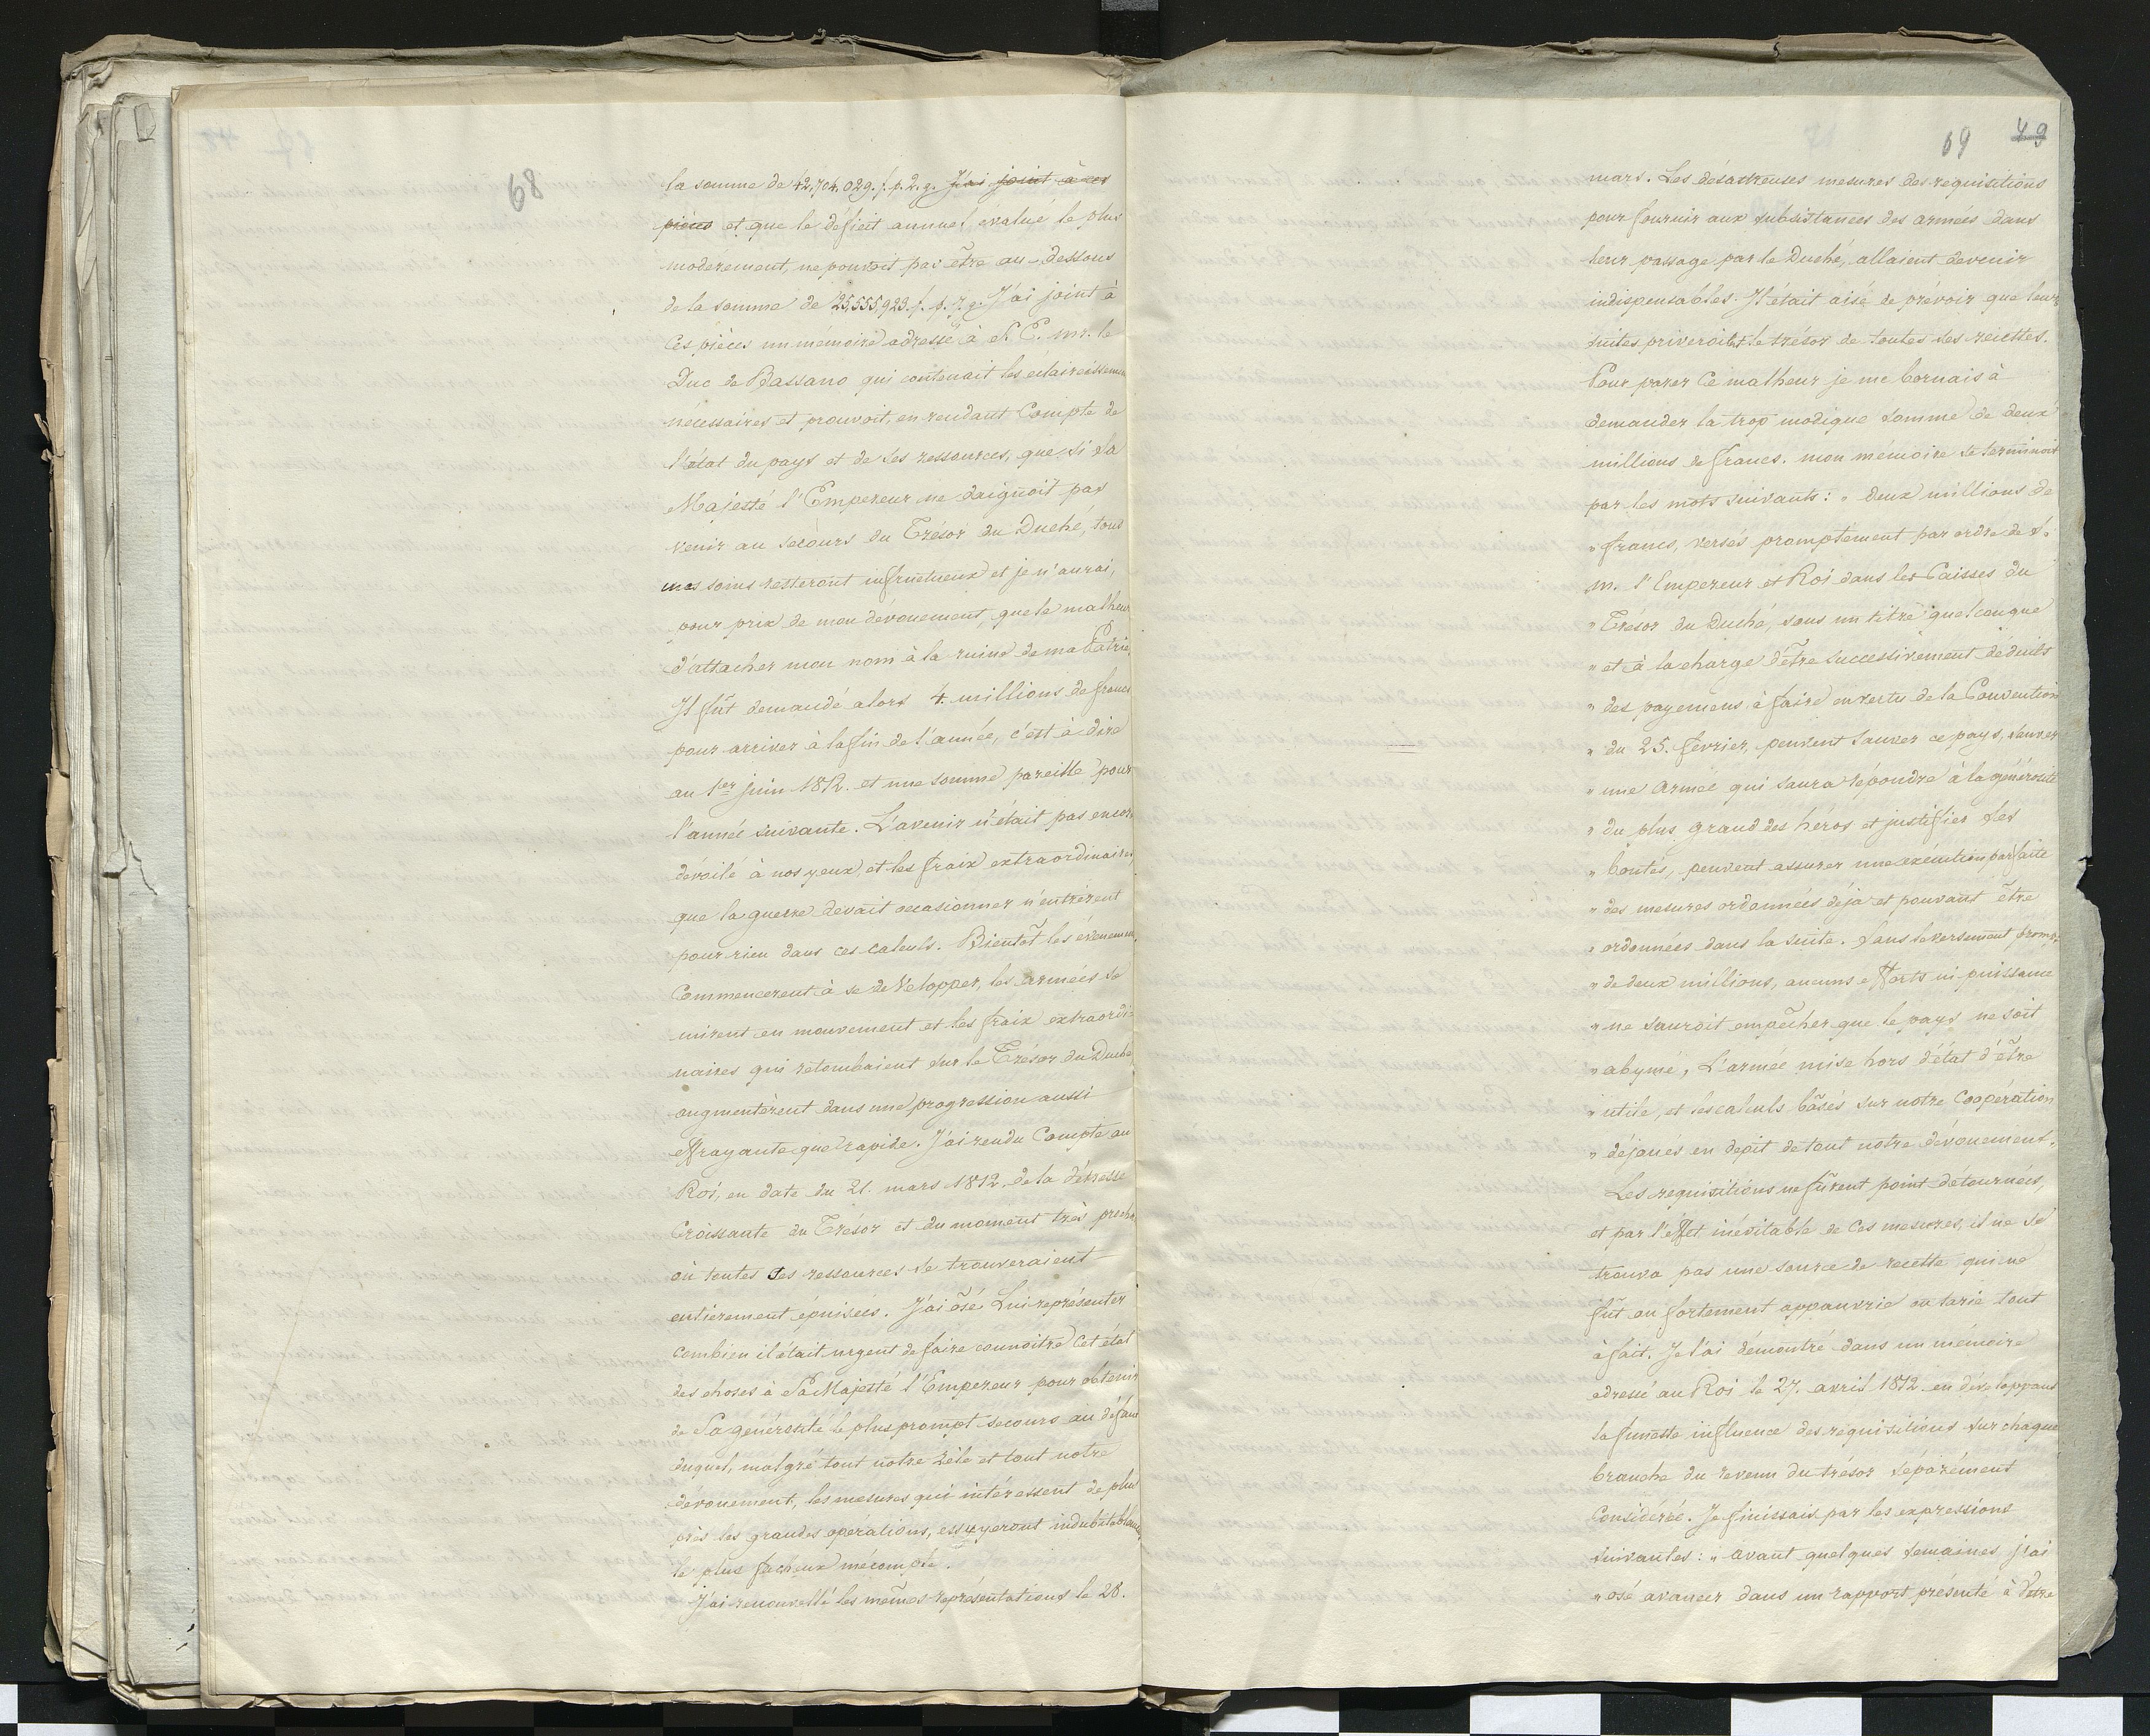 68
la somme de 42,704,029. f. p. 2. g. J'ai joint à ces
pièces et que le déficit annuel évalué le plus
moderement, ne pouvoit pas être au-dessous
de la somme de 25,555,923. f. p. 7. g. J'ai joint à
Ces pièces un mémoire adressé à S. E. mr. le
Duc de Bassano qui contenait les éclaircissemens
nécessaires et prouvoit, en rendant Compte de
l'état du pays et de ses ressources, que si Sa
Majesté l'Empereur ne daignoit pas
venir au secours du Trésor du Duché, tous
mes soins resteront infructueux et je n'aurai,
pour prix de mon dévouement, que le malheur
d'attacher mon nom à la ruine de ma Patrie.
Il fût demandé alors 4. millions de francs
pour arriver à la fin de l'année, c'est à dire
au 1er juin 1812. et une somme pareille pour
l'année suivante. L'avenir n'était pas encore
dévoilé à nos yeux, et les fraix extraordinaires,
que la guerre devait occasionner n'entrèrent
pour rien dans ces calculs. Bientôt les évenemens
Commencerent à se développer, les armées se
mirent en mouvement et les fraix extraordi-
naires qui retombaient sur le Trésor du Duché,
augmentèrent dans une progression aussi
effrayante que rapide. J'ai rendu Compte au
Roi, en date du 21. mars 1812. de la détresse
Croissante du Trésor et du moment très prochain
où toutes Ses ressources se trouveraient
entièrement épuisées. J'ai ôsé Lui représenter
combien il était urgent de faire connoître Cet état
des choses à Sa Majesté l'Empereur pour obtenir
de Sa générosité le plus prompt secours au défaut
duquel, malgré tout notre zèle et tout notre
dévouement, les mesures qui intéressent de plus
près les grandes opérations, essuyeront indubitablement
le plus facheux mécompte.
J'ai renouvellé les mêmes représentations le 28.
69 49
mars. Les désastreuses mesures des requisitions
pour fournir aux subsistances des armées dans
leur passage par le Duché, allaient devenir
indispensables. Il était aisé de prévoir que leurs
suites priveroient le trésor de toutes ses recettes.
Pour parer Ce malheur je me bornais à
demander la trop modique somme de deux
millions de francs. mon mémoire se terminoit
par les mots suivants: „ Deux millions de
„ francs, versés promptement par ordre de S.
m. l'Empereur et Roi dans les Caisses du
„ Trésor du Duché, sous un titre quelconque
„ et à la charge d'être successivement déduits
„ des payemens à faire en vertu de la Convention
„ du 25. fevrier, peuvent sauver ce pays, sauver
„ une Armée qui saura répondre à la générosité
„ du plus grand des héros et justifier Ses
„ bontés, peuvent assurer une exécution parfaite
„ des mesures ordonnées déjà et pouvant être
„ ordonnées dans la suite. Sans le versement prompt
„ de deux millions, aucuns efforts ni puissance
„ ne sauroit empêcher que le pays ne soit
„ abymé, L'armée mise hors d'état d'être
„ utile, et les calculs bâsés sur notre Coopération
„ déjoués en depit de tout notre dévouement.
Les requisitions ne fûrent point détournées,
et par l'effet inévitable de Ces mesures, il ne se
trouva pas une source de recette qui ne
fût ou fortement appauvrie ou tarie tout
à fait. Je l'ai démontré dans un mémoire
adressé au Roi le 27. avril 1812 en développant
la funeste influence des requisitions sur chaque
branche du revenu du trésor séparément
Considérée. Je finissais par les expressions
suivantes: „ avant quelques semaines j'ai
„ osé avancer dans un rapport présenté à Votre